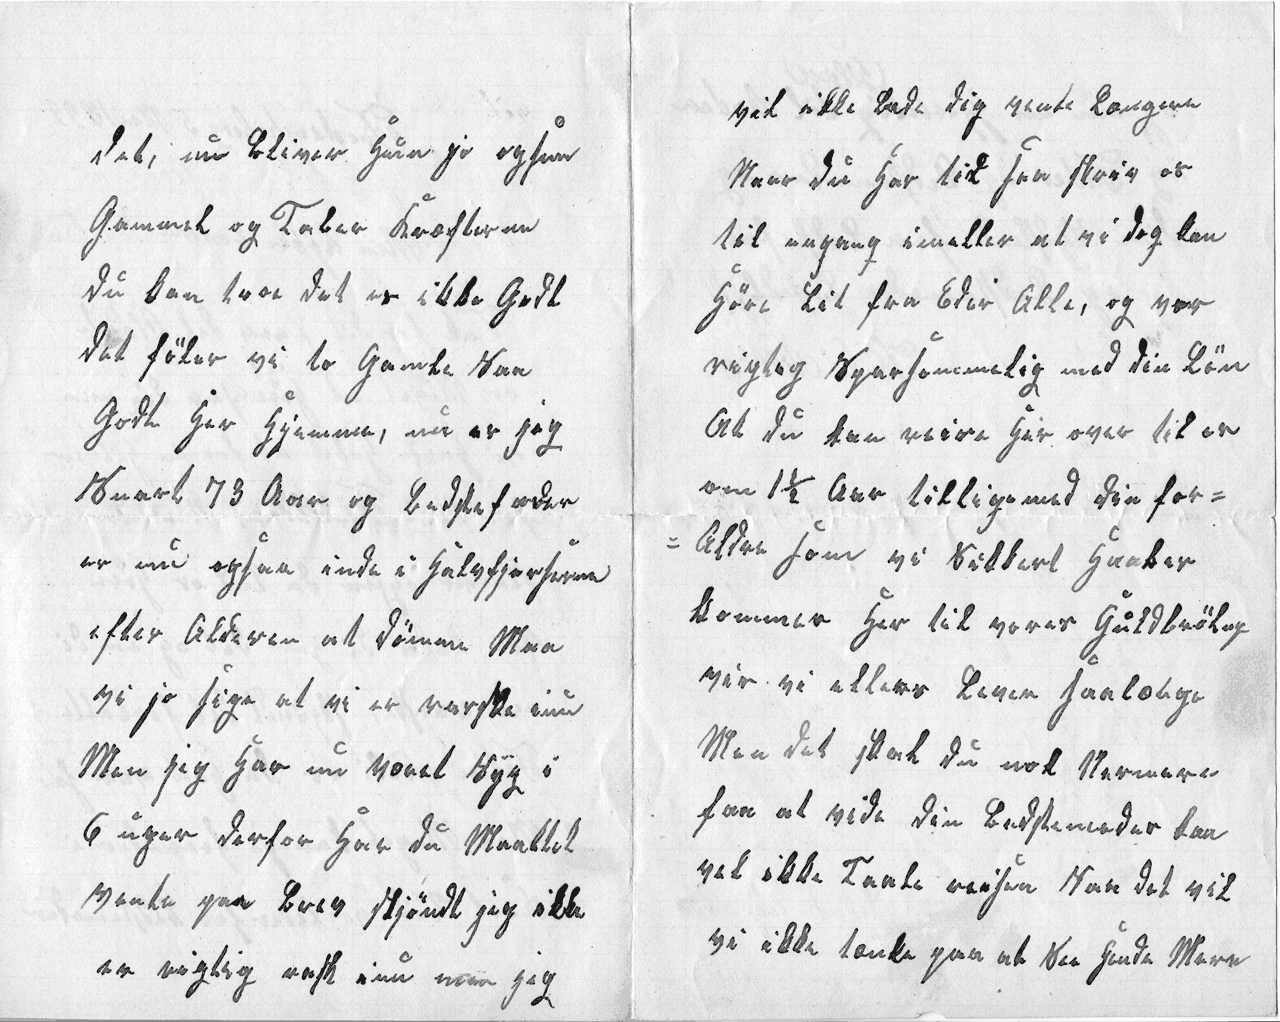 det, nu bliver Hun jo ogsaa
Gammel og Taber Kræfterne
du kan troe det er ikke Godt
det föler vi to Gamle Saa
Godt Her Hjemme, nu er jeg
Snart 73 Aar og Bedstefader
er nu ogsaa inde i Halvfjerserne
efter Alderen at dömme Maa
vi jo sige at vi er raske inu
Men jeg Har nu været Syg i
6 uger derfor Har du Maattet
vente paa Brev skjöndt jeg ikke
er rigtig rask inu men jeg
vil ikke Lade dig vente Længere
Naar du Har tid saa skriv os
til engang imeller at vi dog kan
Höre Lit fra Eder Alle, og vær
rigteg Sparsommelig med din Lön
At du kan reise Her over til os
om 1½ Aar tilligemed din for=
=Aldre som vi Sikkert Haaber
kommer Her til vores Guldbrölup
vis vi ellers Lever saalænge
Men det skal du nok Nermere
faa at vide din Bedstemoder kan
vel ikke Taale reisen Saa det vil
vi ikke tænke paa at See Hende Mere